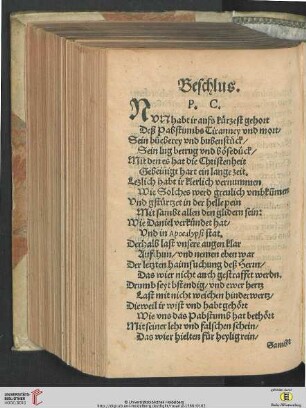 Beschlus.
P. C.
NVN habt ir auffs kürtzest gehort
Deß Pabstumbs Tiranney vnd mort/
Sein büeberey vnd bubenstück/
Sein lug betrug vnd bösedück/
Mit den es hat die Christenheit
Gepeinigt hart ein lange zeit.
Letzlich habt ir klerlich vernummen
Wie Solches werd greulich vmbkummen
Vnd gstürtzet in der helle pein
Mit sambt allen den glidern sein:
Wie Daniel verkündet hat/
Vnd in Apocalypsi stat.
Derhalb last vnsere augen klar
Auff ihm/ vnd nemen eben war
Der letzten haimsuchung deß Herrn/
Das wier nicht auch gestraffet werden.
Drumb seyt bstendig/ vnd ewer hertz
Last mit nicht weichen hinderwertz/
Dieweil ir wist vnd habt gehört
Wie vns das Pabstumb hat bethört
Mit seiner lehr vnd falschen schein/
Das wier hielten für heylig rein/
Sambt
UNIVERSITÄTS-
BIBLIOTHEK
HEIDELBERG
© Universitätsbibliothek Heidelberg